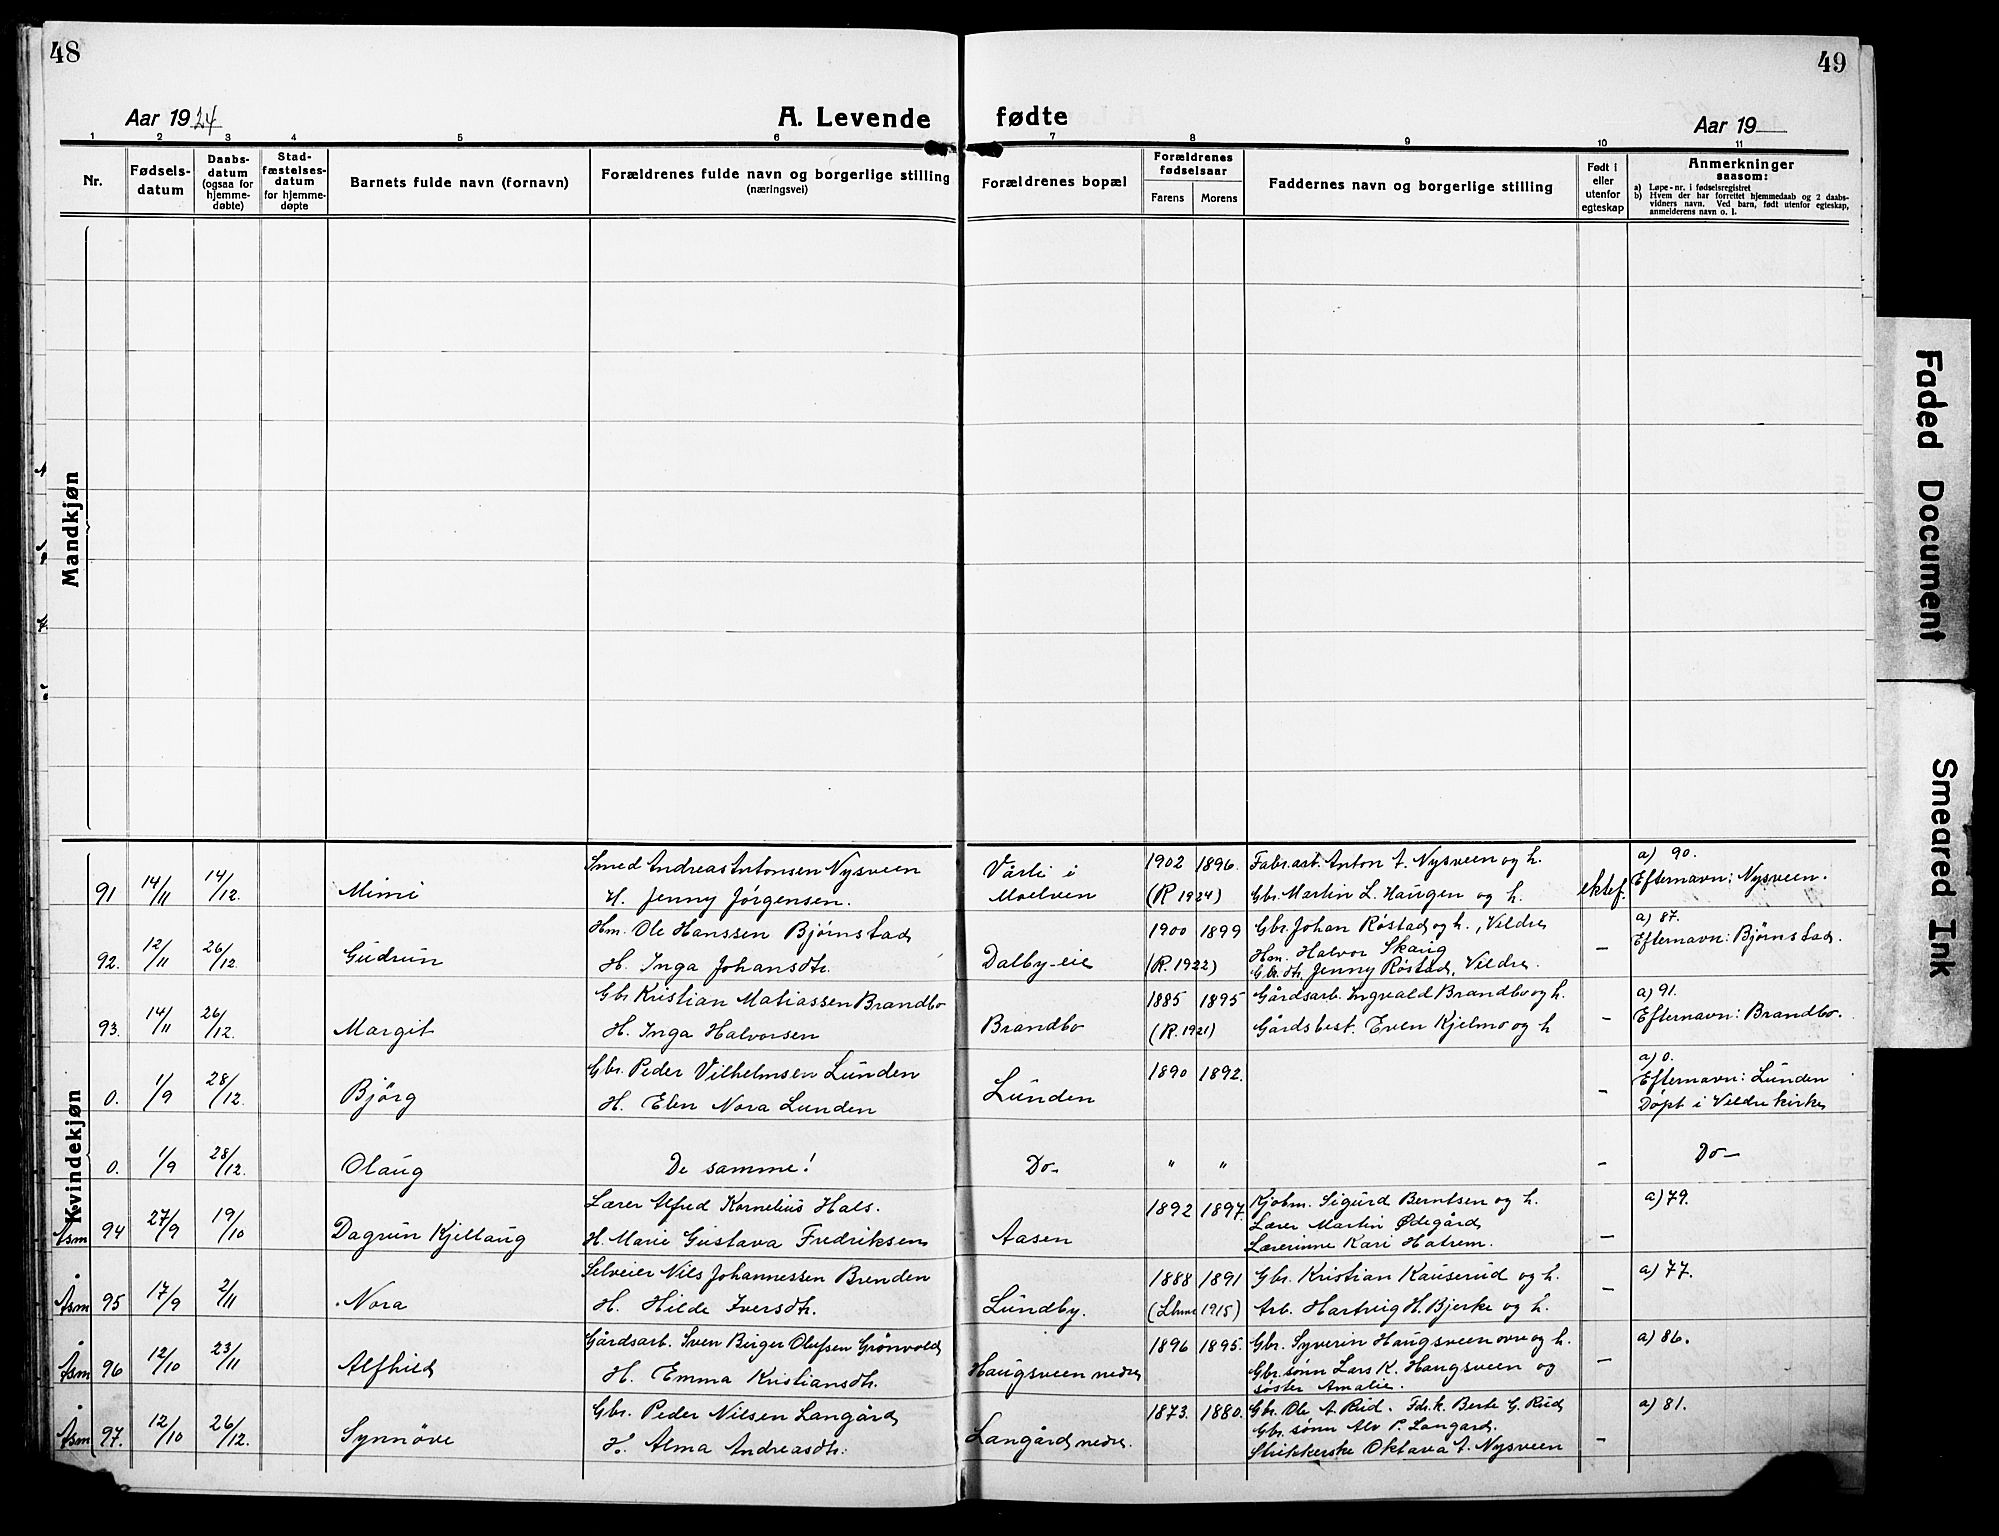 48
49
Aar 1924
A. Levende fødte
Aar 19
1 2 3 4 5 6 7 8 9 10 11
Nr.
Fødsels-
datum
Daabs-
datum
(ogsaa for
hjemme-
døbte)
Stad-
fæstelses-
datum
for hjemme-
døpte
Barnets fulde navn (fornavn)
Forældrenes fulde navn og borgerlige stilling
(næringsvei)
Forældrenes bopæl
Forældrenes
fødselsaar
Farens Morens
Faddernes navn og borgerlige stilling
Født i
eller
utenfor
egteskap
Anmerkninger
saasom:
a) Løpe-nr. i fødselsregistret
b) Hvem der har forrettet hjemmedaab og 2 daabs-
vidners navn. Ved barn, født utenfor egteskap,
anmelderens navn o. l.
Mandkjøn
Kvindekjøn
91 14/11 14/12. Mimi
Smed Andreas Antonsen Nysveen
H. Jenny Jørgensen.
Vårli i
Moelven
1902 1896.
(R 1924)
Fabr.arb. Anton A. Nysveen og h.
Gbr. Martin L. Haugen og h.
ektef.
a) 90.
Efternavn: Nysveen.
92. 12/11 26/12. Gudrun
Hm. Ole Hanssen Bjørnstad
H. Inga Johansdtr.
Dalby-eie
1900 1899
(R. 1922)
Gbr. Johan Røstad og h., Veldre
Hm. Halvor Skaug
Gbr. dtr. Jenny Røstad, Veldre.
–
a) 87.
Efternavn: Bjørnstad.
93. 14/11 26/12. Margit
Gbr Kristian Matiassen Brandbo
H. Inga Halvorsen
Brandbo
1885 1895
(R. 1921)
Gårdsarb. Ingvald Brandbo og h.
Gårdsbest. Even Kjelmo og h
–
a) 91.
Efternavn: Brandbo.
0. 1/9 28/12. Bjørg
Gbr. Peder Vilhelmsen Lunden
H. Elen Nora Lunden
Lunden
1890 1892.
–
a) 0.
Efternavn: Lunden
Døpt i Veldre kirke
0. 1/9 28/12. Olaug
De samme!
Do–
" "
–
Do–
Åsm 94 27/9 19/10 Dagrun Kjellaug
Lærer Alfred Kornelius Hals.
H. Marie Gustava Fredriksen
Aasen
1892 1897.
Kjøbm. Sigurd Berntsen og h.
Lærer Martin Ødegård
Lærerinne Kari Hatrem.
–
a) 79.
Åsm 95 17/9 2/11 Nora
Selveier Nils Johannessen Brenden
H. Hilde Iversdtr.
Lundby.
1888 1891
1915)
Gbr. Kristian Kauserud og h.
Arb. Hartvig H. Bjerke og h.
–
a) 77.
Åsm 96 12/10 23/11 Alfhild
Gårdsarb. Sven Birger Olufsen Grønvold
H. Emma Kristiansdtr.
Haugsveen nedre
1896 1895.
Gbr. Syverin Haugsveen øvre og h.
Gbr. sønn Lars K. Haugsveen og
søster Amalie.
–
a) 86.
Åsm 97. 12/10 26/12. Synnøve
Gbr. Peder Nilsen Langård
H. Alma Andreasdtr.
Langård nedre.
1873. 1880.
Gbr. Ole A. Rud. Fdr.k. Berte G. Rud
Gbr sønn Alv P. Langård.
Strikkerske Oktava A. Nysveen
–
a) 81.
Faded Document
Smeared Ink